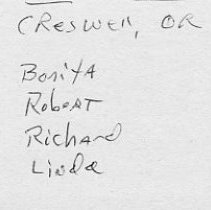 CRESWELL, OR
BONITA
ROBERT
RICHARD
LINDA